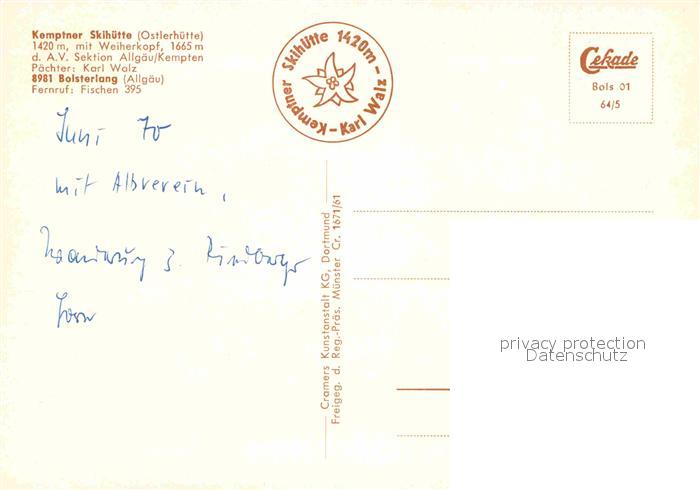 Kemptner Skihütte (Ostlerhütte)
1420 m, mit Weiherkopf, 1665 m
d. A.V. Sektion Allgäu/Kempten
Pächter: Karl Walz
8981 Bolsterlang (Allgäu)
Fernruf: Fischen 395
Kemptner Skihütte 1420m – Karl Walz –
Cekade
Bols 01
64/5
Juni 70
mit Albverein,
Wanderung z. Rindberger
Horn
Cramers Kunstanstalt KG, Dortmund
Freigeg. d. Reg.-Präs. Münster Cr. 1671/61
privacy protection
Datenschutz